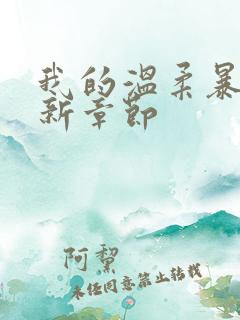 我的温柔暴
新章节
阿絜
未经同意禁止转载